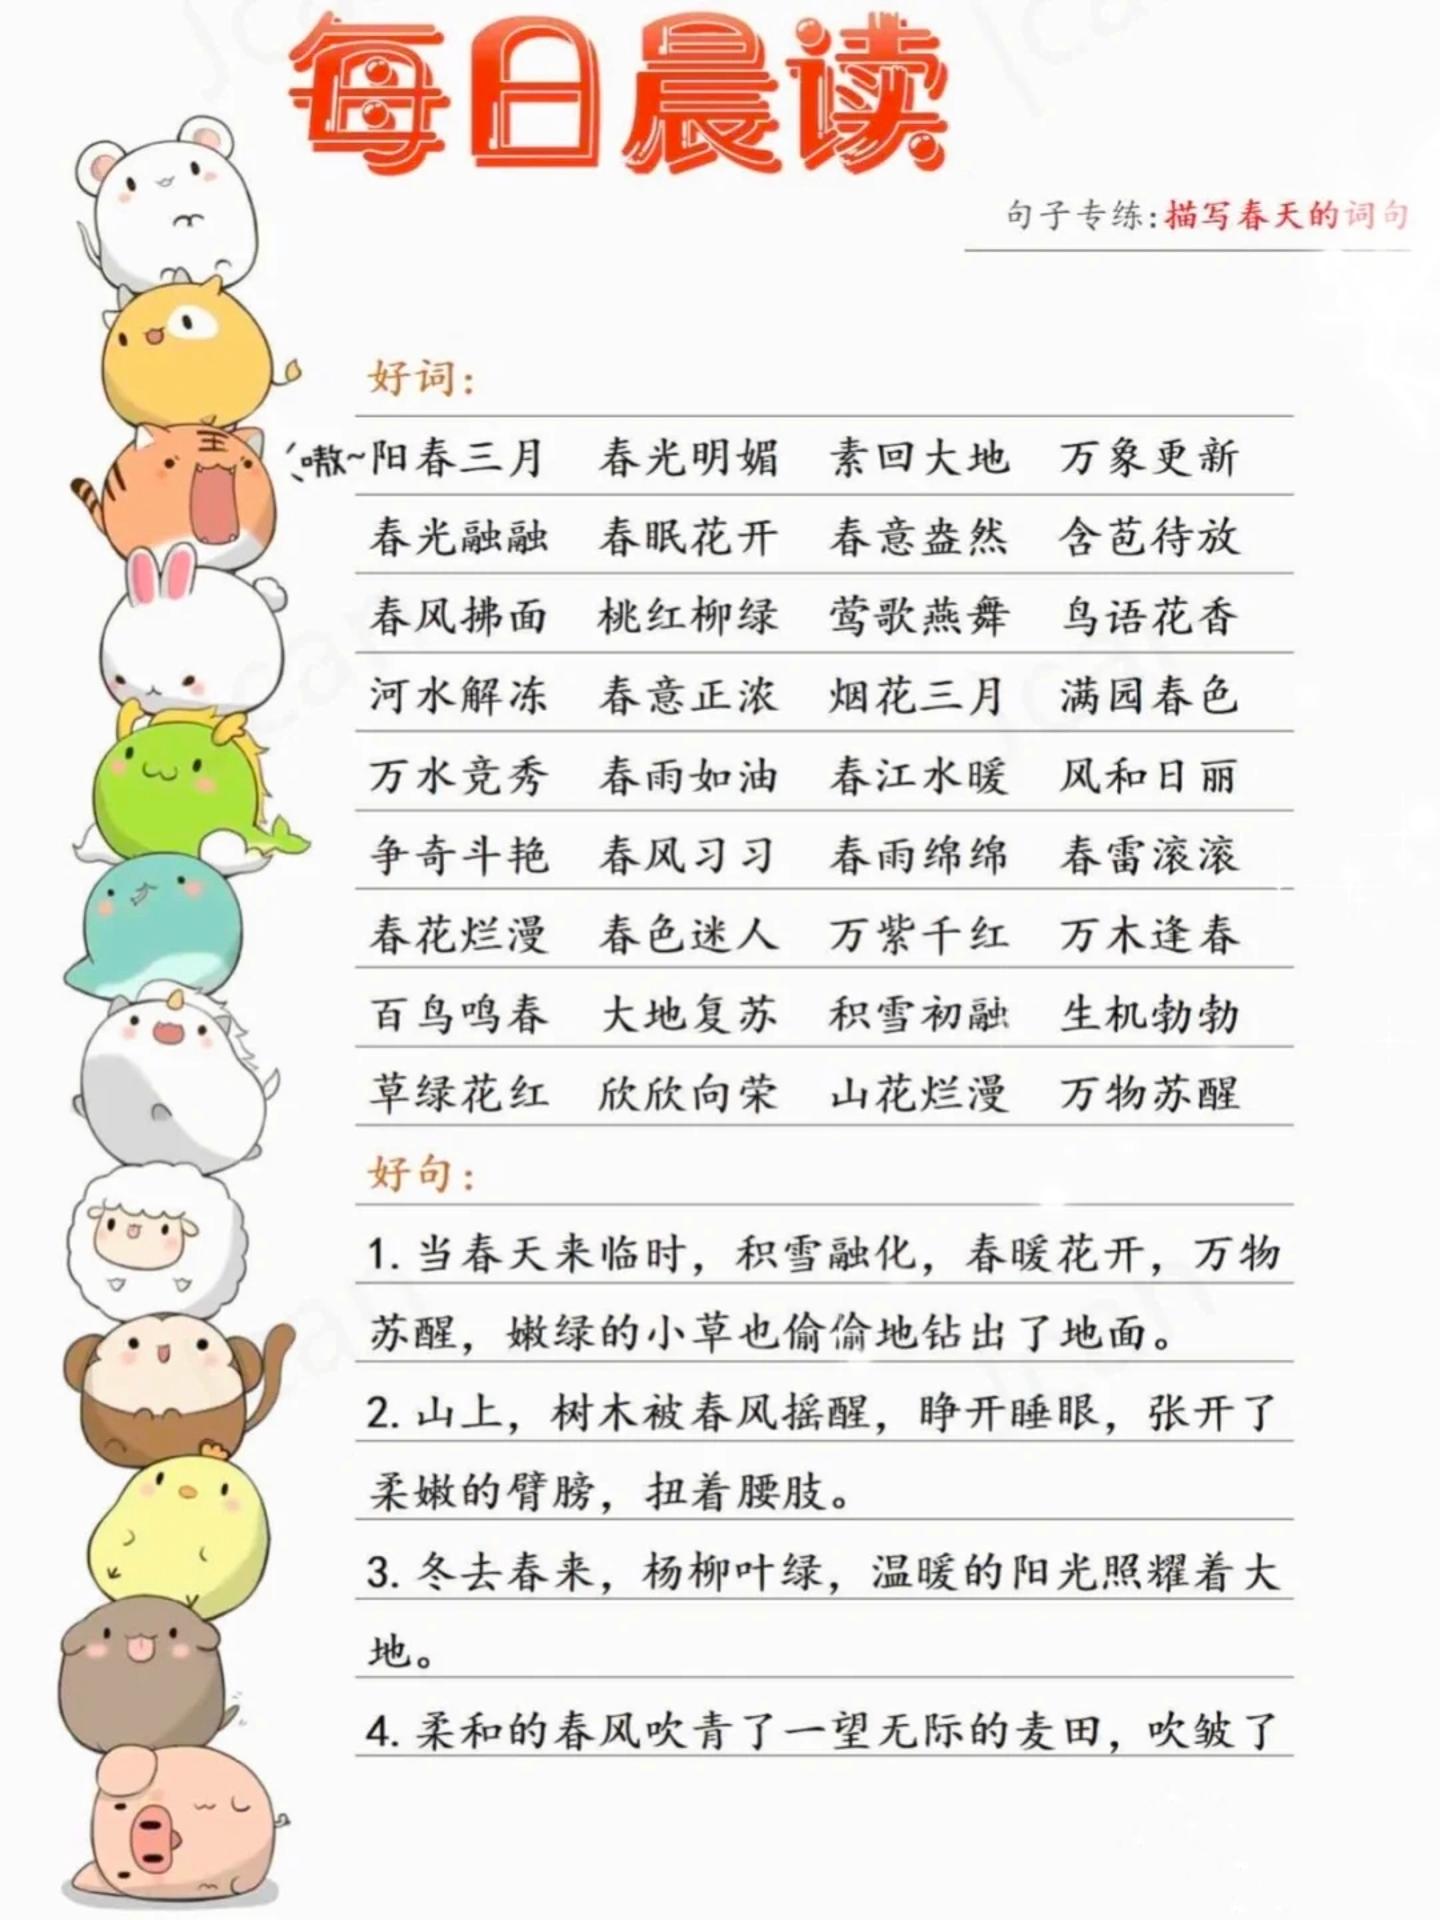 每日晨读
句子专练:描写春天的词句
好词:
嗷~
阳春三月 春光明媚 素回大地 万象更新
春光融融 春眠花开 春意盎然 含苞待放
春风拂面 桃红柳绿 莺歌燕舞 鸟语花香
河水解冻 春意正浓 烟花三月 满园春色
万水竞秀 春雨如油 春江水暖 风和日丽
争奇斗艳 春风习习 春雨绵绵 春雷滚滚
春花烂漫 春色迷人 万紫千红 万木逢春
百鸟鸣春 大地复苏 积雪初融 生机勃勃
草绿花红 欣欣向荣 山花烂漫 万物苏醒
好句:
1. 当春天来临时，积雪融化，春暖花开，万物
苏醒，嫩绿的小草也偷偷地钻出了地面。
2. 山上，树木被春风摇醒，睁开睡眼，张开了
柔嫩的臂膀，扭着腰肢。
3. 冬去春来，杨柳叶绿，温暖的阳光照耀着大
地。
4. 柔和的春风吹青了一望无际的麦田，吹皱了